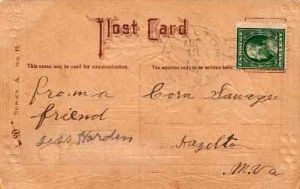 Post Card
This space may be used for communication.
The address only to be written here.
SERIES A No. 15
From a
friend
Jess Harden
Cora Savage
Hazelto
W.Va